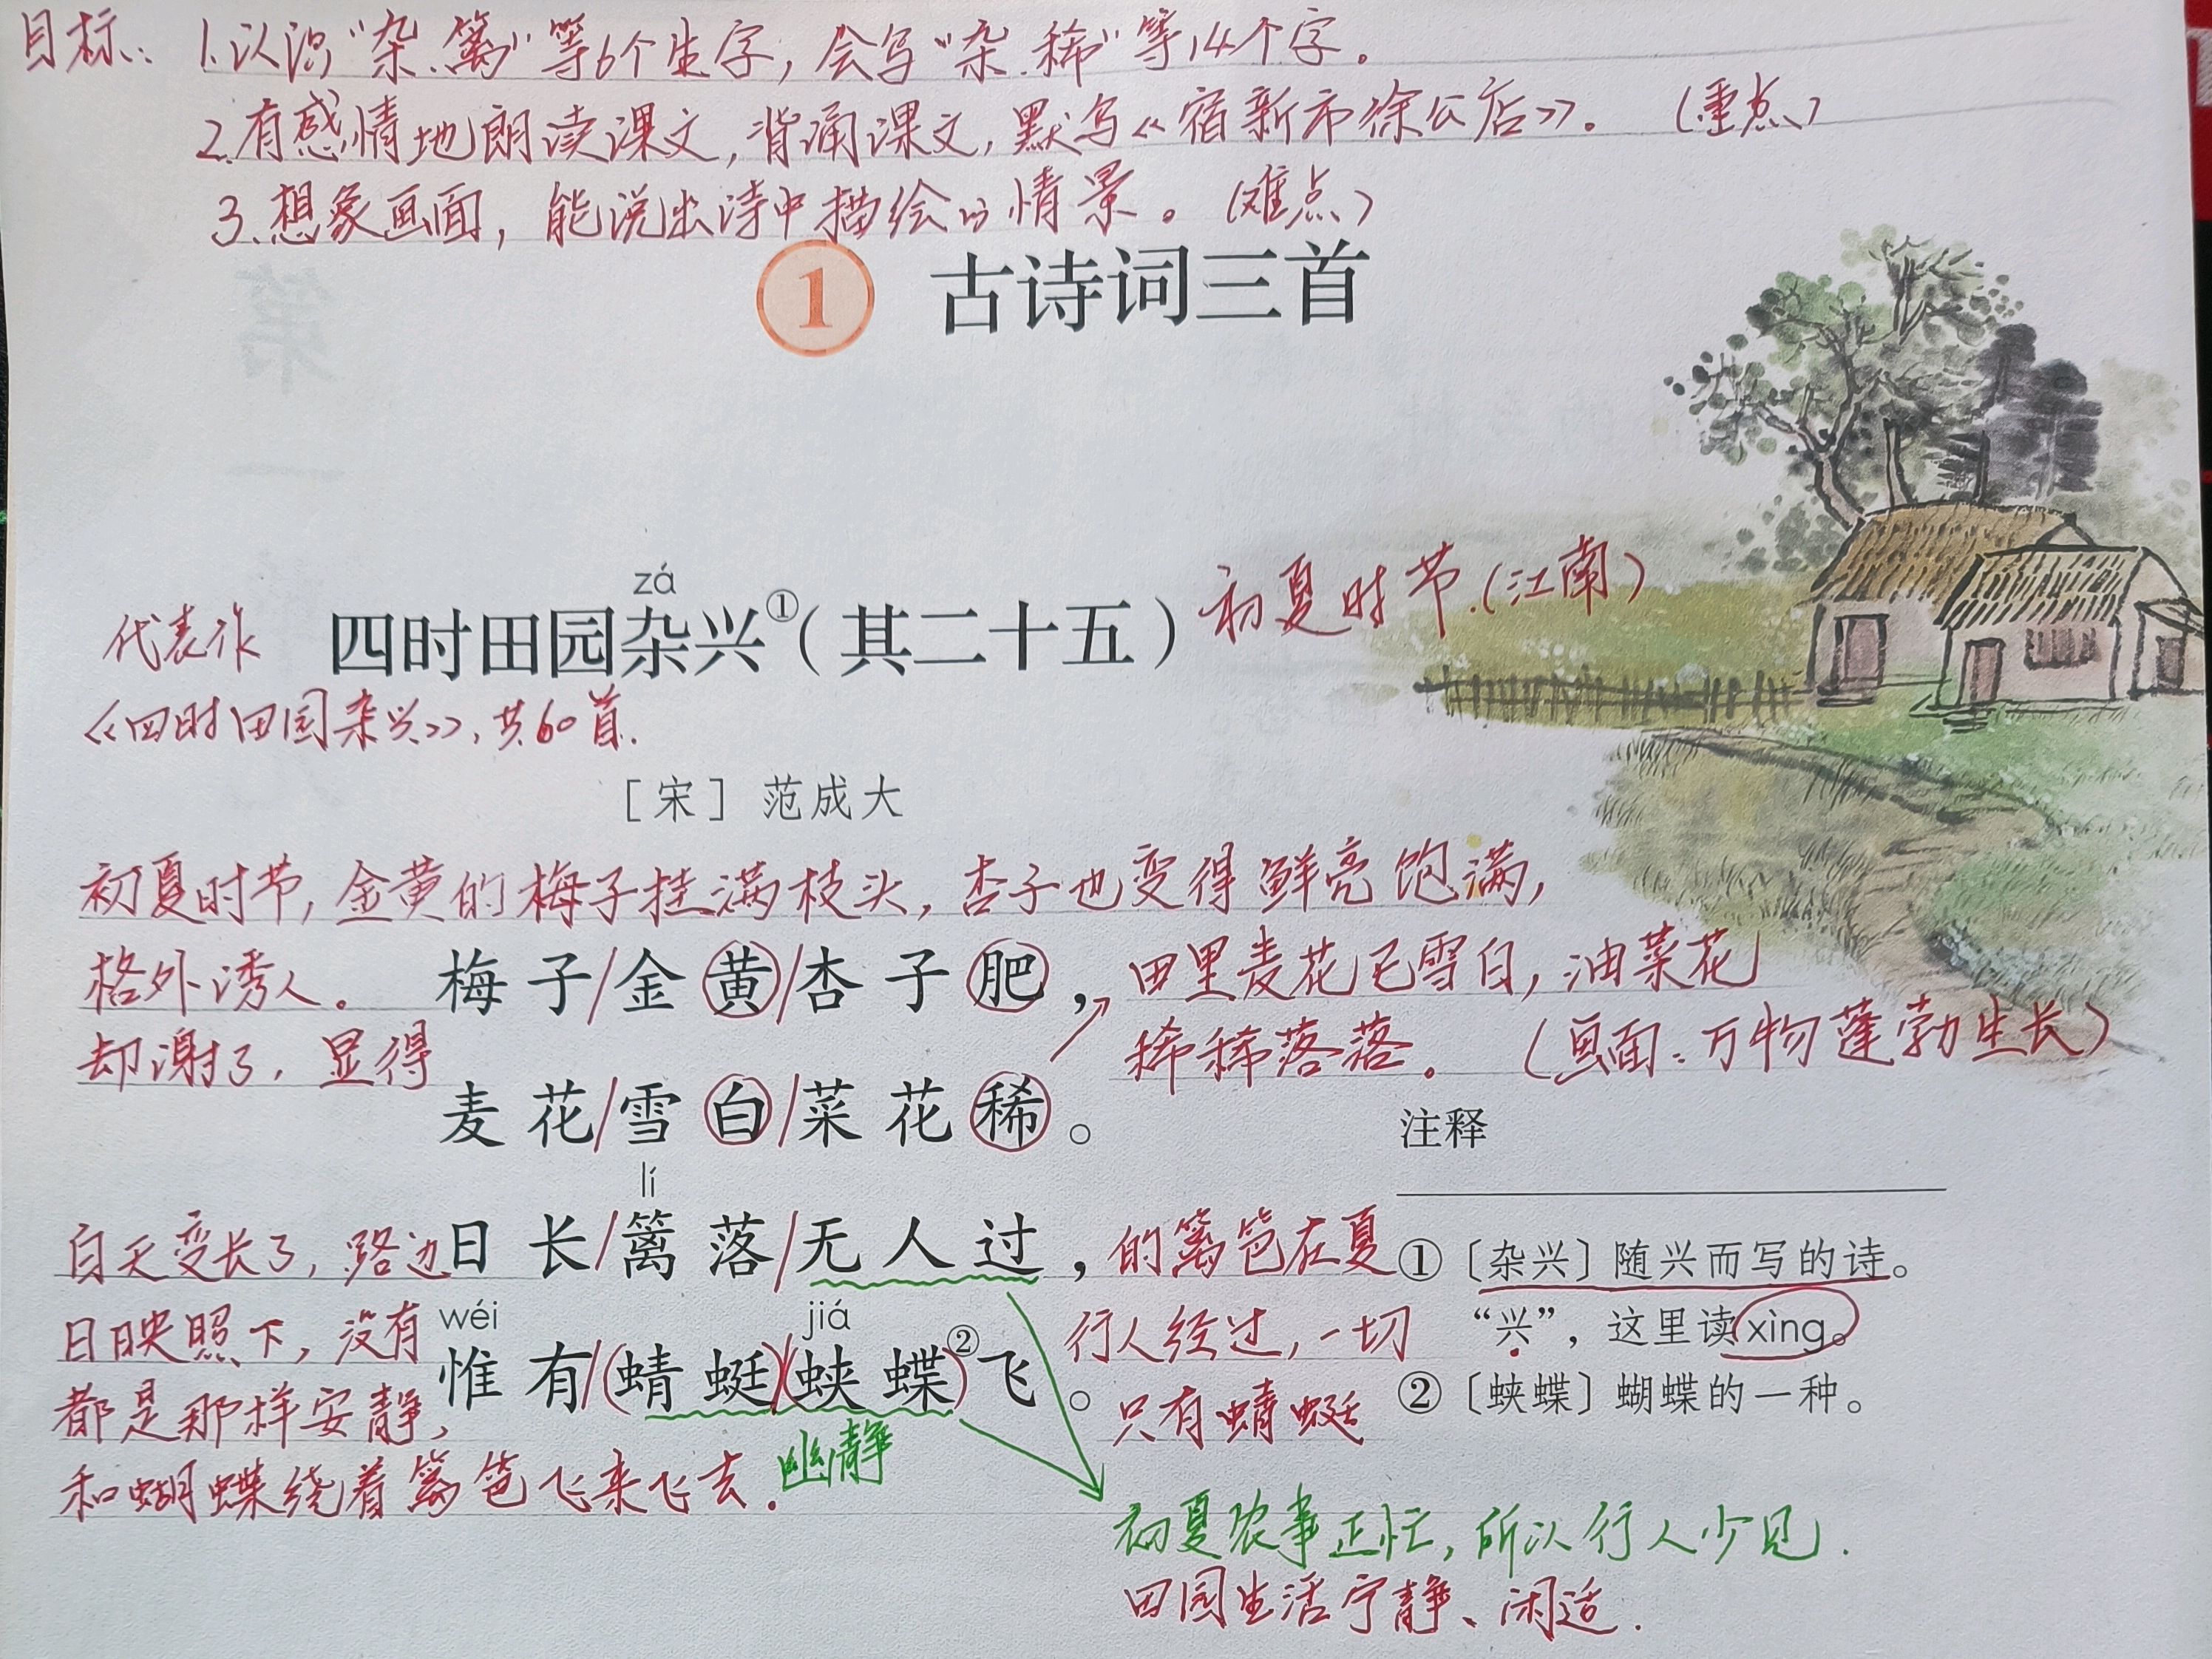 目标：1.认识“杂、篱”等6个生字，会写“杂、稀”等14个字。
2.有感情地朗读课文，背诵课文，默写《宿新市徐公店》。（重点）
3.想象画面，能说出诗中描绘的情景。（难点）
1 古诗词三首
zá
代表作 四时田园杂兴①（其二十五） 初夏时节.（江南）
《四时田园杂兴》，共60首.
［宋］范成大
初夏时节，金黄的梅子挂满枝头，杏子也变得鲜亮饱满，
格外诱人。 梅子/金黄/杏子肥， 田里麦花已雪白，油菜花
却谢了，显得 稀稀落落。（画面：万物蓬勃生长）
麦花/雪白/菜花稀。
注释
lí
白天变长了，路边 日长/篱落/无人过， 的篱笆在夏
①〔杂兴〕随兴而写的诗。
“兴”，这里读xìng。
wéi jiá
日映照下，没有 行人经过，一切
惟有/(蜻蜓)(蛱蝶)②飞。
②〔蛱蝶〕蝴蝶的一种。
都是那样安静， 只有蜻蜓
和蝴蝶绕着篱笆飞来飞去. 幽静
初夏农事正忙，所以行人少见.
田园生活宁静、闲适.